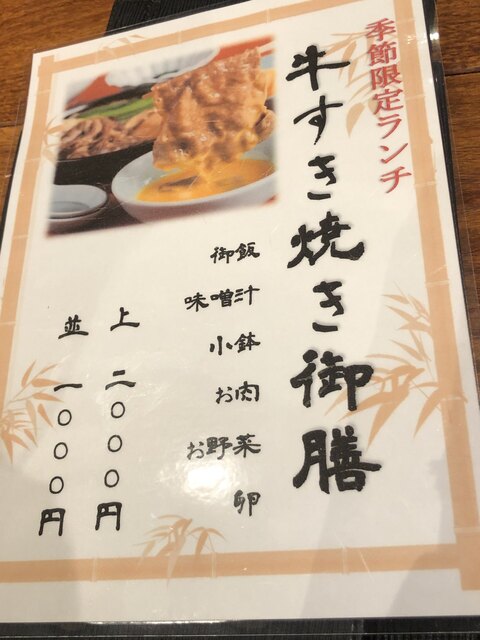 季節限定ランチ
牛すき焼き御膳
御飯
味噌汁
小鉢
お肉
お野菜
卵
上 二〇〇〇円
並 一〇〇〇円